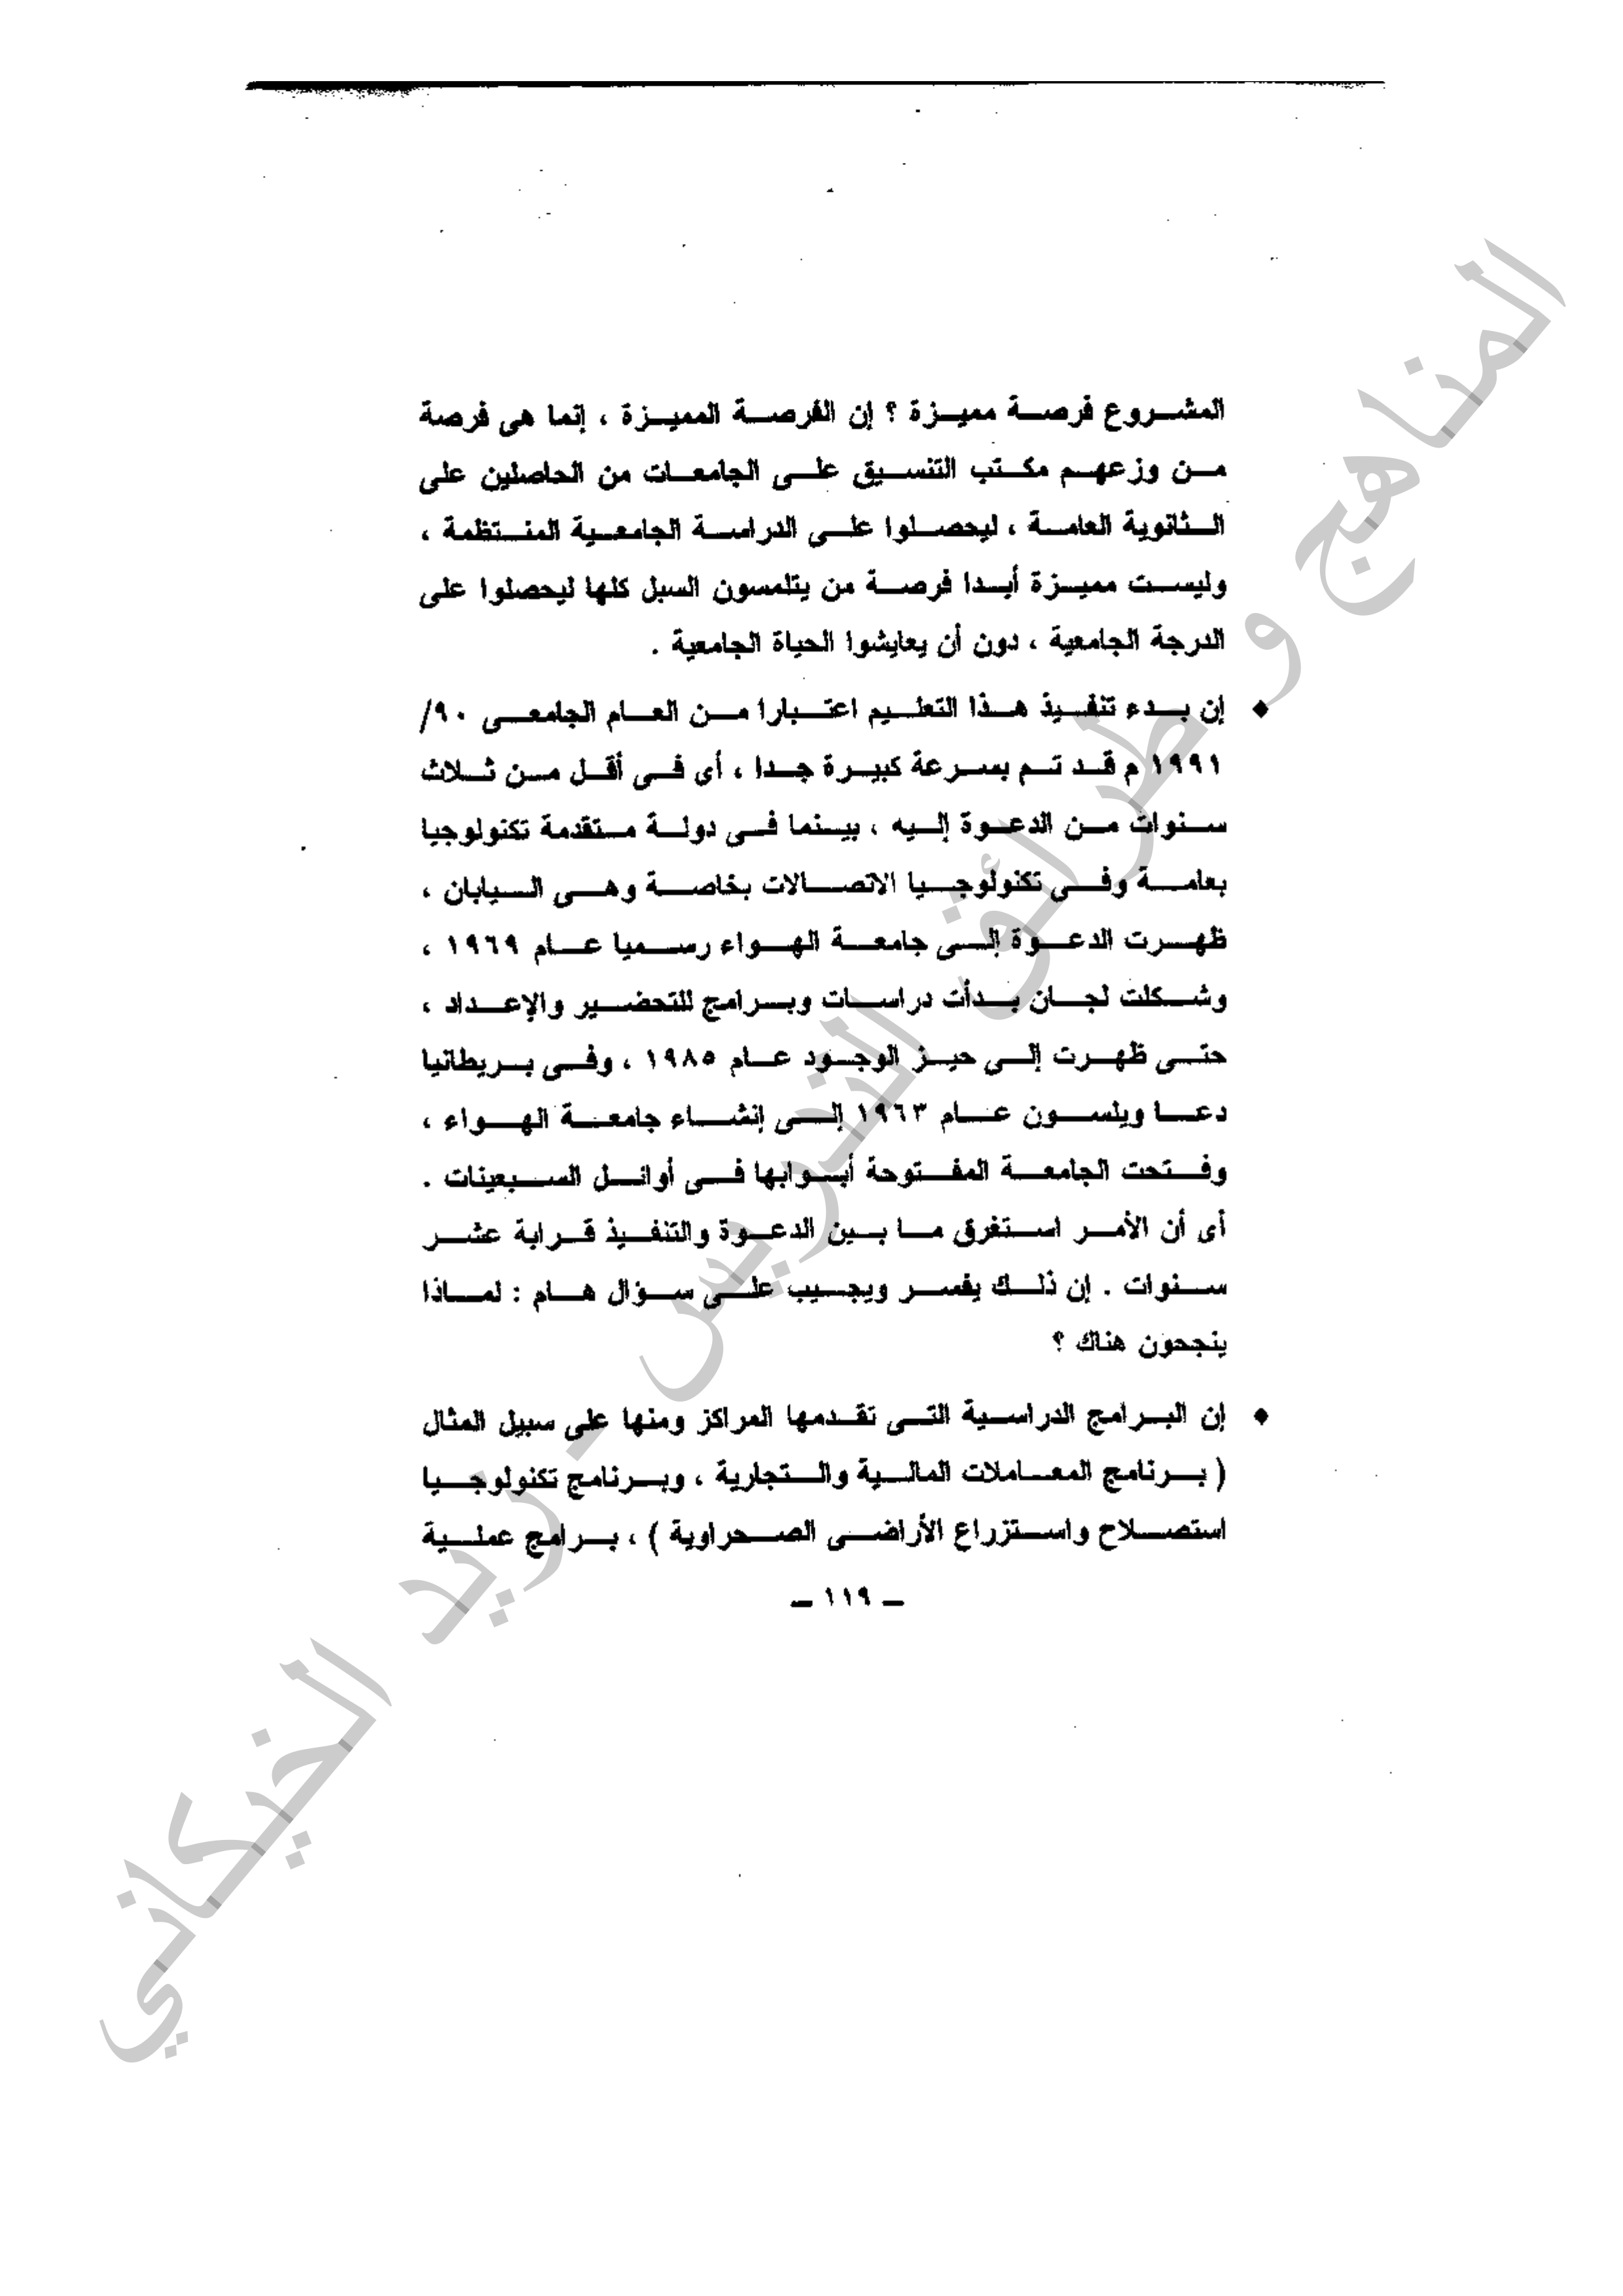 المشروع فرصة مميزة ؟ إن الفرصة المميزة ، إنما هى فرصة
من وزعهم مكتب التنسيق على الجامعات من الحاصلين على
الثانوية العامة ، ليحصلوا على الدراسة الجامعية المنتظمة ،
وليست مميزة أبدا فرصة من يتلمسون السبل كلها ليحصلوا على
الدرجة الجامعية ، دون أن يعايشوا الحياة الجامعية .
◆ إن بدء تنفيذ هذا التعليم اعتبارا من العام الجامعى ٩٠/
١٩٩١ م قد تم بسرعة كبيرة جدا ، أى فى أقل من ثلاث
سنوات من الدعوة إليه ، بينما فى دولة متقدمة تكنولوجيا
بعامة وفى تكنولوجيا الاتصالات بخاصة وهى اليابان ،
ظهرت الدعوة إلى جامعة الهواء رسميا عام ١٩٦٩ ،
وشكلت لجان بدأت دراسات وبرامج للتحضير والإعداد ،
حتى ظهرت إلى حيز الوجود عام ١٩٨٥ ، وفى بريطانيا
دعا ويلسون عام ١٩٦٣ إلى إنشاء جامعة الهواء ،
وفتحت الجامعة المفتوحة أبوابها فى أوائل السبعينات .
أى أن الأمر استغرق ما بين الدعوة والتنفيذ قرابة عشر
سنوات . إن ذلك يفسر ويجيب على سؤال هام : لماذا
ينجحون هناك ؟
◆ إن البرامج الدراسية التى تقدمها المراكز ومنها على سبيل المثال
( برنامج المعاملات المالية والتجارية ، وبرنامج تكنولوجيا
استصلاح واستزراع الأراضى الصحراوية ) ، برامج عملية
ــ ١١٩ ــ
المناهج و طرائق التدريس - زيد الخيكاني